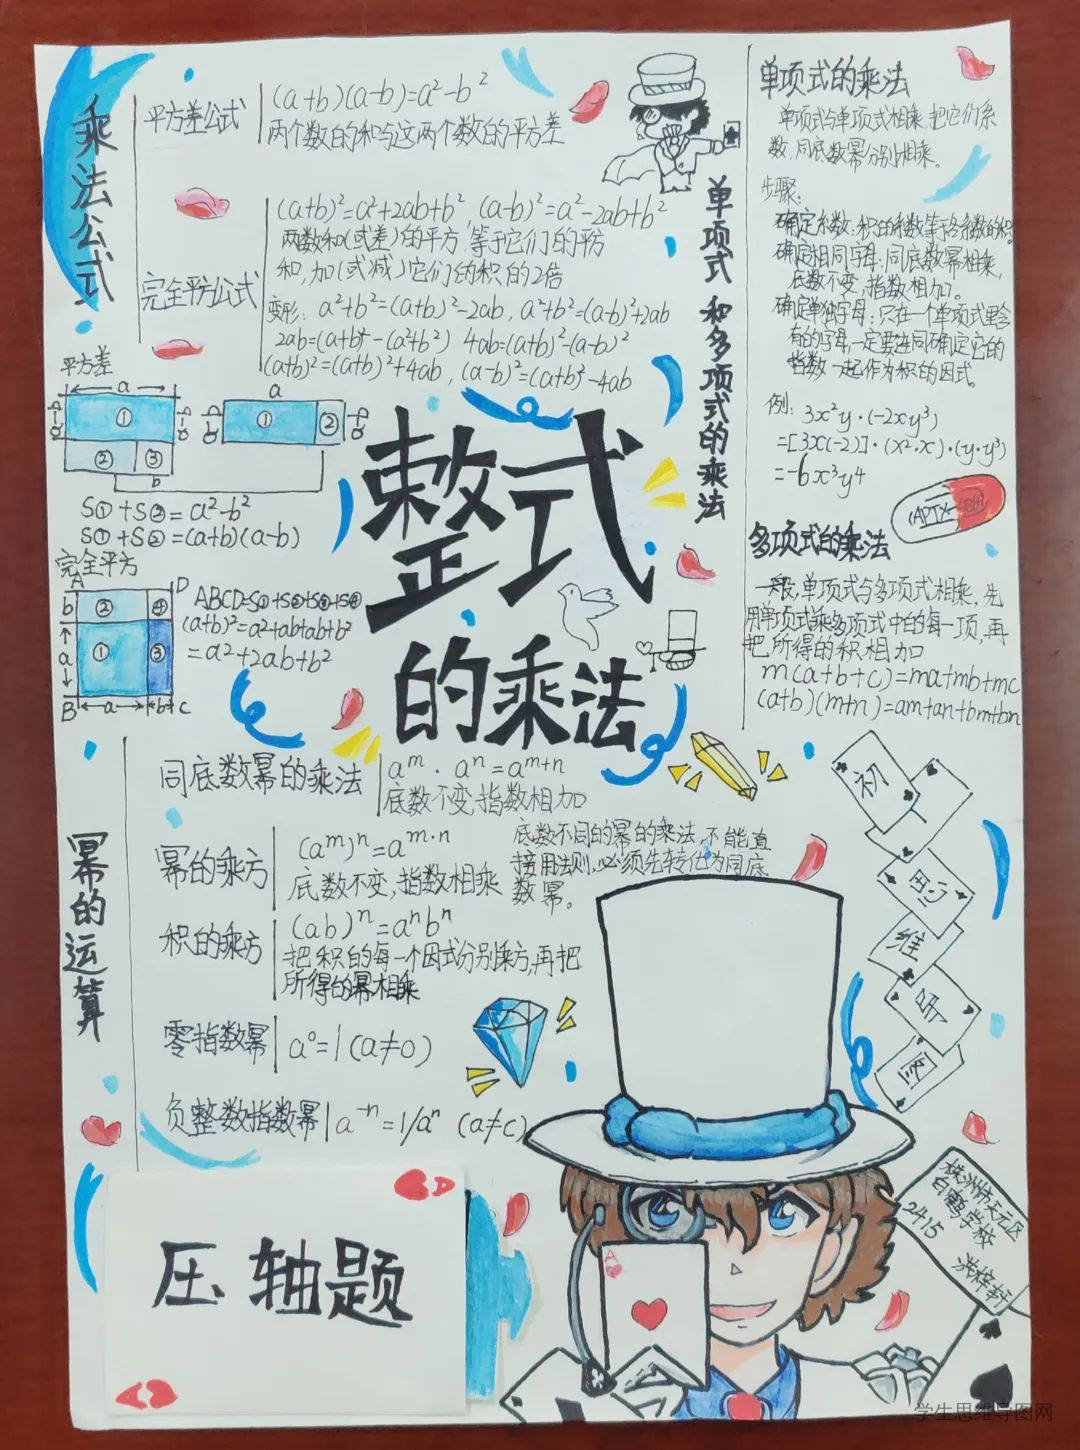 乘法公式
平方差公式
(a+b)(a-b)=a²-b²
两个数的和与这两个数的平方差
完全平方公式
(a+b)²=a²+2ab+b², (a-b)²=a²-2ab+b²
两数和(或差)的平方,等于它们的平方
和,加(或减)它们的积的2倍
变形: a²+b²=(a+b)²-2ab, a²+b²=(a-b)²+2ab
2ab=(a+b)²-(a²+b²) 4ab=(a+b)²-(a-b)²
(a+b)²=(a+b)²+4ab, (a-b)²=(a+b)²-4ab
平方差
a
①
②
③
b
a
①
②
S①+S②=a²-b²
S①+S②=(a+b)(a-b)
完全平方
A
D
b
②
④
a
①
③
B
a
b
C
ABCD=S①+S②+S③+S④
(a+b)²=a²+ab+ab+b²
=a²+2ab+b²
整式
的乘法
单项式和多项式的乘法
单项式的乘法
单项式与单项式相乘,把它们系
数,同底数幂分别相乘。
步骤:
确定系数:积的系数等于各系数的积。
确定相同字母:同底数幂相乘,
底数不变,指数相加。
确定单独字母:只在一个单项式里含
有的字母,一定要连同确定它的
指数一起作为积的因式。
例: 3x²y·(-2xy³)
=[3×(-2)]·(x²·x)·(y·y³)
=-6x³y⁴
APTX
多项式的乘法
一般,单项式与多项式相乘,先
用单项式乘多项式中的每一项,再
把所得的积相加
m(a+b+c)=ma+mb+mc
(a+b)(m+n)=am+an+bm+bn
幂的运算
同底数幂的乘法
aᵐ·aⁿ=aᵐ⁺ⁿ
底数不变,指数相加
幂的乘方
(aᵐ)ⁿ=aᵐ·ⁿ
底数不变,指数相乘
底数不同的幂的乘法,不能直
接用法则,必须先转化为同底
数幂。
积的乘方
(ab)ⁿ=aⁿbⁿ
把积的每一个因式分别乘方,再把
所得的幂相乘
零指数幂
a⁰=1(a≠0)
负整数指数幂
a⁻ⁿ=1/aⁿ (a≠c)
初
思
维
导
图
压轴题
A
株洲市天元区
白鹤学校
2415
学生思维导图网